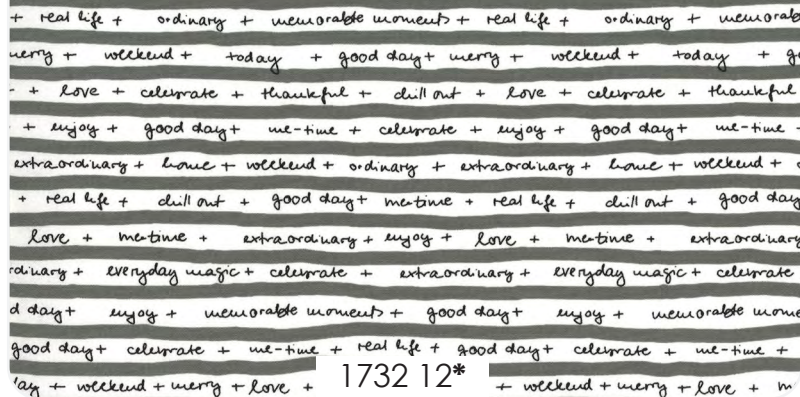 + real life + ordinary + memorable moments + real life + ordinary + memorab
merry + weekend + today + good day+ merry + weekend + today + go
+ love + celebrate + thankful + chill out + love + celebrate + thankful
+ enjoy + good day+ me-time + celebrate + enjoy + good day+ me-time
extraordinary + home + weekend + ordinary + extraordinary + home + weekend +
+ real life + chill out + good day+ me-time + real life + chill out + good day
love + me-time + extraordinary + enjoy + love + me-time + extraordinary
rdinary + everyday magic + celebrate + extraordinary + everyday magic + celebrate
d day+ enjoy + memorable moments + good day+ enjoy + memorable mome
good day+ celebrate + me-time + real life + good day+ celebrate + me-time +
'ay + weekend + merry + love + + weekend + merry + love + m
1732 12*